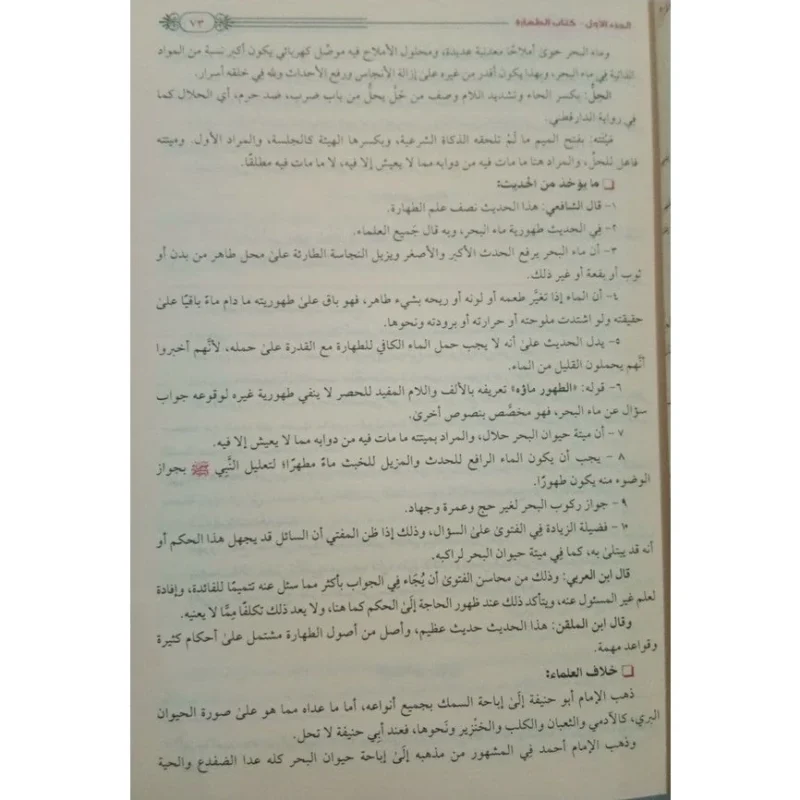 الجزء الأول - كتاب الطهارة
٧٣
وماء البحر حوىٰ أملاحًا معدنية عديدة، ومحلول الأملاح فيه موصِّل كهربائي يكون أكبر نسبة من المواد
الذائبة فِي ماء البحر، وبهذا يكون أقدر من غيره علىٰ إزالة الأنجاس ورفع الأحداث ولله في خلقه أسرار.
الحِلُّ: بكسر الحاء وتشديد اللام وصف من حَلَّ يحلُّ من باب ضرب، ضد حرم، أي الحلال كما
فِي رواية الدارقطني.
مَيْتته: بفتح الميم ما لَمْ تلحقه الذكاة الشرعية، وبكسرها الهيئة كالجلسة، والمراد الأول. وميتته
فاعل للحلِّ، والمراد هنا ما مات فيه من دوابه مما لا يعيش إلا فيه، لا ما مات فيه مطلقًا.
❑ ما يؤخذ من الحديث:
١- قال الشافعي: هذا الحديث نصف علم الطهارة.
٢- فِي الحديث طهورية ماء البحر، وبه قال جَميع العلماء.
٣- أن ماء البحر يرفع الحدث الأكبر والأصغر ويزيل النجاسة الطارئة علىٰ محل طاهر من بدن أو
ثوب أو بقعة أو غير ذلك.
٤- أن الماء إذا تغيَّر طعمه أو لونه أو ريحه بشيء طاهر، فهو باق علىٰ طهوريته ما دام ماءً باقيًا علىٰ
حقيقته ولو اشتدت ملوحته أو حرارته أو برودته ونحوها.
٥- يدل الحديث علىٰ أنه لا يجب حمل الماء الكافي للطهارة مع القدرة علىٰ حمله، لأنَّهم أخبروا
أنَّهم يحملون القليل من الماء.
٦- قوله: «الطهور ماؤه» تعريفه بالألف واللام المفيد للحصر لا ينفي طهورية غيره لوقوعه جواب
سؤال عن ماء البحر، فهو مخصَّص بنصوص أخرىٰ.
٧- أن ميتة حيوان البحر حلال، والمراد بميتته ما مات فيه من دوابه مما لا يعيش إلا فيه.
٨- يجب أن يكون الماء الرافع للحدث والمزيل للخبث ماءً مطهرًا؛ لتعليل النَّبِي ﷺ بجواز
الوضوء منه يكون طهورًا.
٩- جواز ركوب البحر لغير حج وعمرة وجهاد.
١٠- فضيلة الزيادة فِي الفتوىٰ علىٰ السؤال، وذلك إذا ظن المفتي أن السائل قد يجهل هذا الحكم أو
أنه قد يبتلىٰ به، كما فِي ميتة حيوان البحر لراكبه.
قال ابن العربي: وذلك من محاسن الفتوىٰ أن يُجَاء فِي الجواب بأكثر مما سئل عنه تتميمًا للفائدة، وإفادة
لعلم غير المسئول عنه، ويتأكد ذلك عند ظهور الحاجة إلَىٰ الحكم كما هنا، ولا يعد ذلك تكلفًا مِمَّا لا يعنيه.
وقال ابن الملقن: هذا الحديث حديث عظيم، وأصل من أصول الطهارة مشتمل علىٰ أحكام كثيرة
وقواعد مهمة.
❑ خلاف العلماء:
ذهب الإمام أبو حنيفة إلَىٰ إباحة السمك بجميع أنواعه، أما ما عداه مما هو علىٰ صورة الحيوان
البري، كالآدمي والثعبان والكلب والخنْزير ونَحوها، فعند أبِي حنيفة لا تحل.
وذهب الإمام أحمد في المشهور من مذهبه إلَىٰ إباحة حيوان البحر كله عدا الضفدع والحية